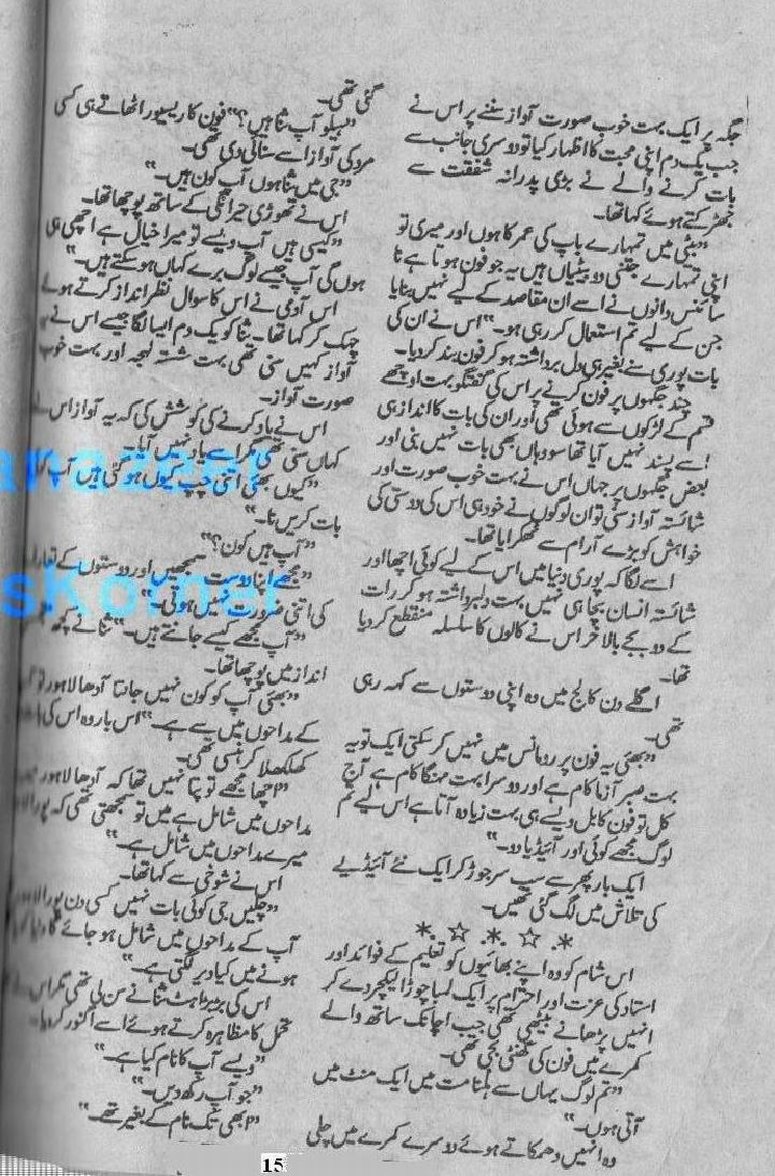 جگہ پر ایک بہت خوب صورت آواز سننے پر اس نے
جب یک دم اپنی محبت کا اظہار کیا تو دوسری جانب سے
بات کرنے والے نے بڑی پدرانہ شفقت سے
جھڑکتے ہوئے کہا تھا۔
"بیٹی میں تمہارے باپ کی عمر کا ہوں اور میری تو
اپنی تمہارے جتنی دو بیٹیاں ہیں یہ جو فون ہوتا ہے نا
سائنس دانوں نے اسے ان مقاصد کے لیے نہیں بنایا
جن کے لیے تم استعمال کر رہی ہو۔" اس نے ان کی
بات پوری سنے بغیر ہی دل برداشتہ ہو کر فون بند کر دیا۔
چند جگہوں پر فون کرنے پر اس کی گفتگو بہت اوچھے
قسم کے لڑکوں سے ہوئی تھی اور ان کی بات کا انداز ہی
اسے پسند نہیں آیا تھا سو وہاں بھی بات نہیں بنی اور
بعض جگہوں پر جہاں اس نے بہت خوب صورت اور
شائستہ آواز سنی تو ان لوگوں نے خود ہی اس کی دوستی کی
خواہش کو بڑے آرام سے ٹھکرایا تھا۔
اسے لگا کہ پوری دنیا میں اس کے لیے کوئی اچھا اور
شائستہ انسان بچا ہی نہیں بہت دلبرداشتہ ہو کر رات
کے دو بجے بالاخر اس نے کالوں کا سلسلہ منقطع کر دیا
تھا۔
اگلے دن کالج میں وہ اپنی دوستوں سے کہہ رہی
تھی۔
"بھئی یہ فون پر رومانس میں نہیں کر سکتی ایک تو یہ
بہت صبر آزما کام ہے اور دوسرا بہت مہنگا کام ہے آج
کل تو فون کا بل ویسے ہی بہت زیادہ آتا ہے اس لیے تم
لوگ مجھے کوئی اور آئیڈیا دو۔"
ایک بار پھر سے سب سر جوڑ کر ایک نئے آئیڈیے
کی تلاش میں لگ گئی تھیں۔
*.☆.*.☆.*
اس شام کو وہ اپنے بھائیوں کو تعلیم کے فوائد اور
استاد کی عزت اور احترام پر ایک لمبا چوڑا لیکچر دے کر
انہیں پڑھانے بیٹھی تھی جب اچانک ساتھ والے
کمرے میں فون کی گھنٹی بجی تھی۔
"تم لوگ یہاں سے ہلنا مت میں ایک منٹ میں
آتی ہوں۔"
وہ انہیں دھمکاتے ہوئے دوسرے کمرے میں چلی
گئی تھی۔
"ہیلو آپ ثنا ہیں؟" فون کا ریسیور اٹھاتے ہی کسی
مرد کی آواز اسے سنائی دی تھی۔
"جی میں ثنا ہوں آپ کون ہیں۔"
اس نے تھوڑی حیرانگی کے ساتھ پوچھا تھا۔
"کیسی ہیں آپ ویسے تو میرا خیال ہے اچھی ہی
ہوں گی آپ جیسے لوگ برے کہاں ہو سکتے ہیں۔"
اس آدمی نے اس کا سوال نظر انداز کرتے ہوئے
چہک کر کہا تھا۔ ثنا کو یک دم ایسا لگا جیسے اس نے یہ
آواز کہیں سنی تھی بہت شستہ لہجہ اور بہت خوب
صورت آواز۔
اس نے یاد کرنے کی کوشش کی کہ یہ آواز اس نے
کہاں سنی تھی مگر اسے یاد نہیں آیا۔
"کیوں بھئی اتنی چپ کیوں ہو گئی ہیں آپ
بات کریں نا۔"
"آپ ہیں کون؟"
"مجھے اپنا دوست سمجھیں اور دوستوں کے تعارف
کی اتنی ضرورت نہیں ہوتی۔"
"آپ مجھے کیسے جانتے ہیں۔" ثنا نے کچھ
انداز میں پوچھا تھا۔
"بھئی آپ کو کون نہیں جانتا آدھا لاہور تو
کے مداحوں میں سے ہے۔" اس بار وہ اس کی
کھلکھلا کر ہنسی تھی۔
"اچھا مجھے تو پتا نہیں تھا کہ آدھا لاہور
مداحوں میں شامل ہے میں تو سمجھتی تھی کہ پورا
میرے مداحوں میں شامل ہے۔"
اس نے شوخی سے کہا تھا۔
"چلیں جی کوئی بات نہیں کسی دن پورا لاہور
آپ کے مداحوں میں شامل ہو جائے گا
ہونے میں کیا دیر لگتی ہے۔"
اس کی بڑبڑاہٹ ثنا نے سن لی تھی مگر اس نے
تحمل کا مظاہرہ کرتے ہوئے اسے اگنور کر دیا۔
"ویسے آپ کا نام کیا ہے۔"
"جو آپ رکھ دیں۔"
"ابھی تک نام کے بغیر تھے۔"
anazeer
sKorner
15